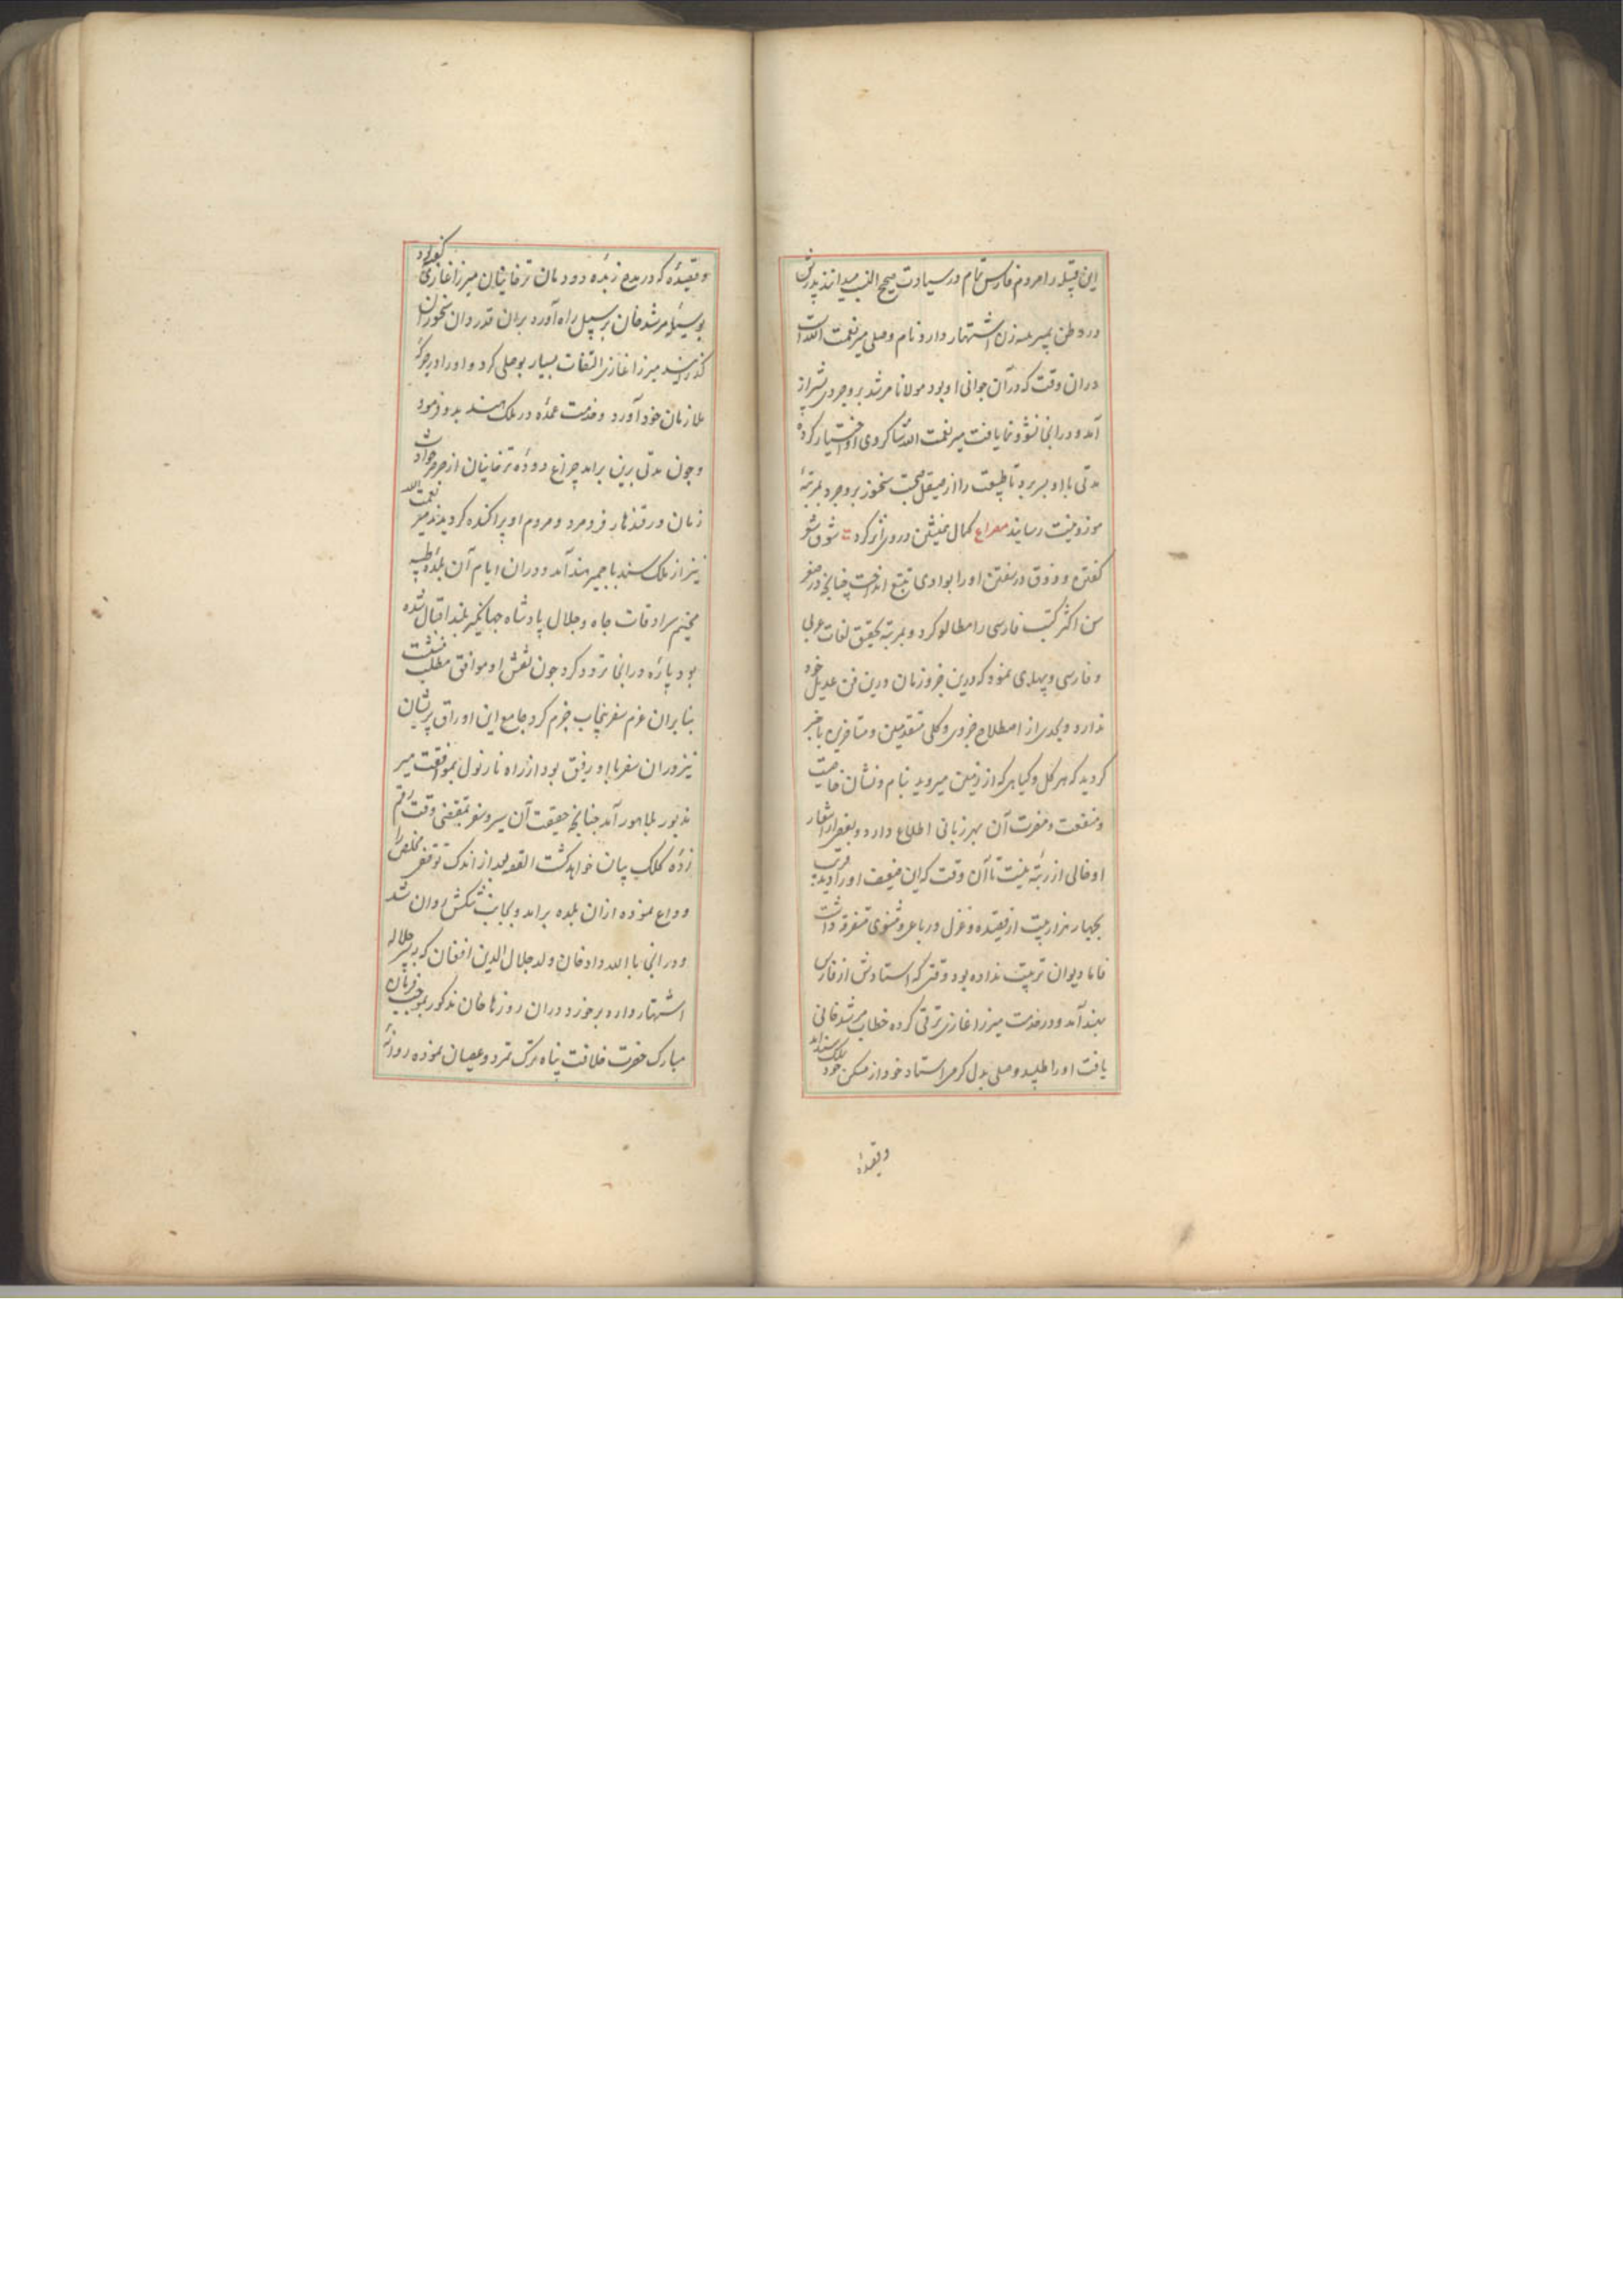 این قبیله را مردم فارس تمام در سیادت صحیح النسب میدانند پدرش
در وطن بمیر سه زن اشتهار دارد نام وصلی میر نعمت الله است
دران وقت که در آن جوانی او بود مولانا مرشد بروجردی بشیراز
آمد و در انجا نشو و نما یافت میر نعمت الله شاکردی او اختیار کرده
مدتی با او بسر برد تا طبیعت را از صیقل صحبت سخنور بروجرد بمرتبهٔ
موزونیت رسانید مصراع کمال همنشین در وی اثر کرد شوق شعر
کفتن و ذوق در سفتن او را بوادی تتبع انداخت چنانچه در صغر
سن اکثر کتب فارسی را مطالعه کرد و بمرتبه تحقیق لغات عربی
و فارسی و پهلوی نموده که درین جزو زمان درین فن عدیل خود
ندارد و بحدی از اصطلاح جزوی و کلی متقدمین و متاخرین با خبر
کردید که هر کل و کیاهی که از زمین میروید بنام و نشان خاصیت
و منفعت و مضرت آن بهر زبانی اطلاع دارد و بعضی از اشعار
او خالی از رتبه نیست تا آن وقت که این ضعیف او را دید قریب
بچهار هزار بیت از قصیده و غزل و رباعی و مثنوی متفرقه داشت
فاما دیوان ترتیب نداده بود وقتی که استادش از فارس
بهند آمد و در خدمت میرزا غازی ترقی کرده خطاب مرشد خانی
یافت او را طلبید وصلی بدل کرمی استاد خود از مسکن خود بملک سند آمد
و قصیدهٔ
و قصیدهٔ که در مدح زبدهٔ دودمان ترخانیان میرزا غازی کفته بود
بوسیلهٔ مرشد خان بر سبیل راه آورد بران قدردان سخنوران
کذرانید میرزا غازی التفات بسیار بوصلی کرد و او را در جرکهٔ
ملازمان خود آورد و خدمت عمده در ملک سند بدو فرمود
و چون مدتی برین برامد چراغ دودهٔ ترخانیان از صرصر حوادث
زمان در قندهار فرو مرد و مردم او پراکنده کردیدند میر نعمت الله
نیز از ملک سند باجمیر هند آمد و دران ایام آن بلدهٔ طیبه
مخیم سرادقات جاه و جلال پادشاه جهانکیر بلند اقبال شده
بود پارهٔ در انجا تردد کرد چون نقش او موافق مطلب ننشست
بنابران عزم سفر پنجاب جزم کرد جامع این اوراق پریشان
نیز دران سفر با او رفیق بود از راه نارنول بموافقت میر
مذبور بلاهور آمد چنانچه حقیقت آن سیر و سفر بمقتضی وقت رقم
زدهٔ کلک بیان خواهد کشت القصه بعد از اندک توقفی مخلص را
وداع نموده ازان بلده برامد و بجانب بنکش روان شد
و در انجا با الله داد خان ولد جلال الدین افغان که به پسر جلاله
اشتهار دارد برخورد دران روزها خان مذکور بموجب فرمان
مبارک حضرت خلافت پناه ترک تمرد و عصیان نموده روانهٔ